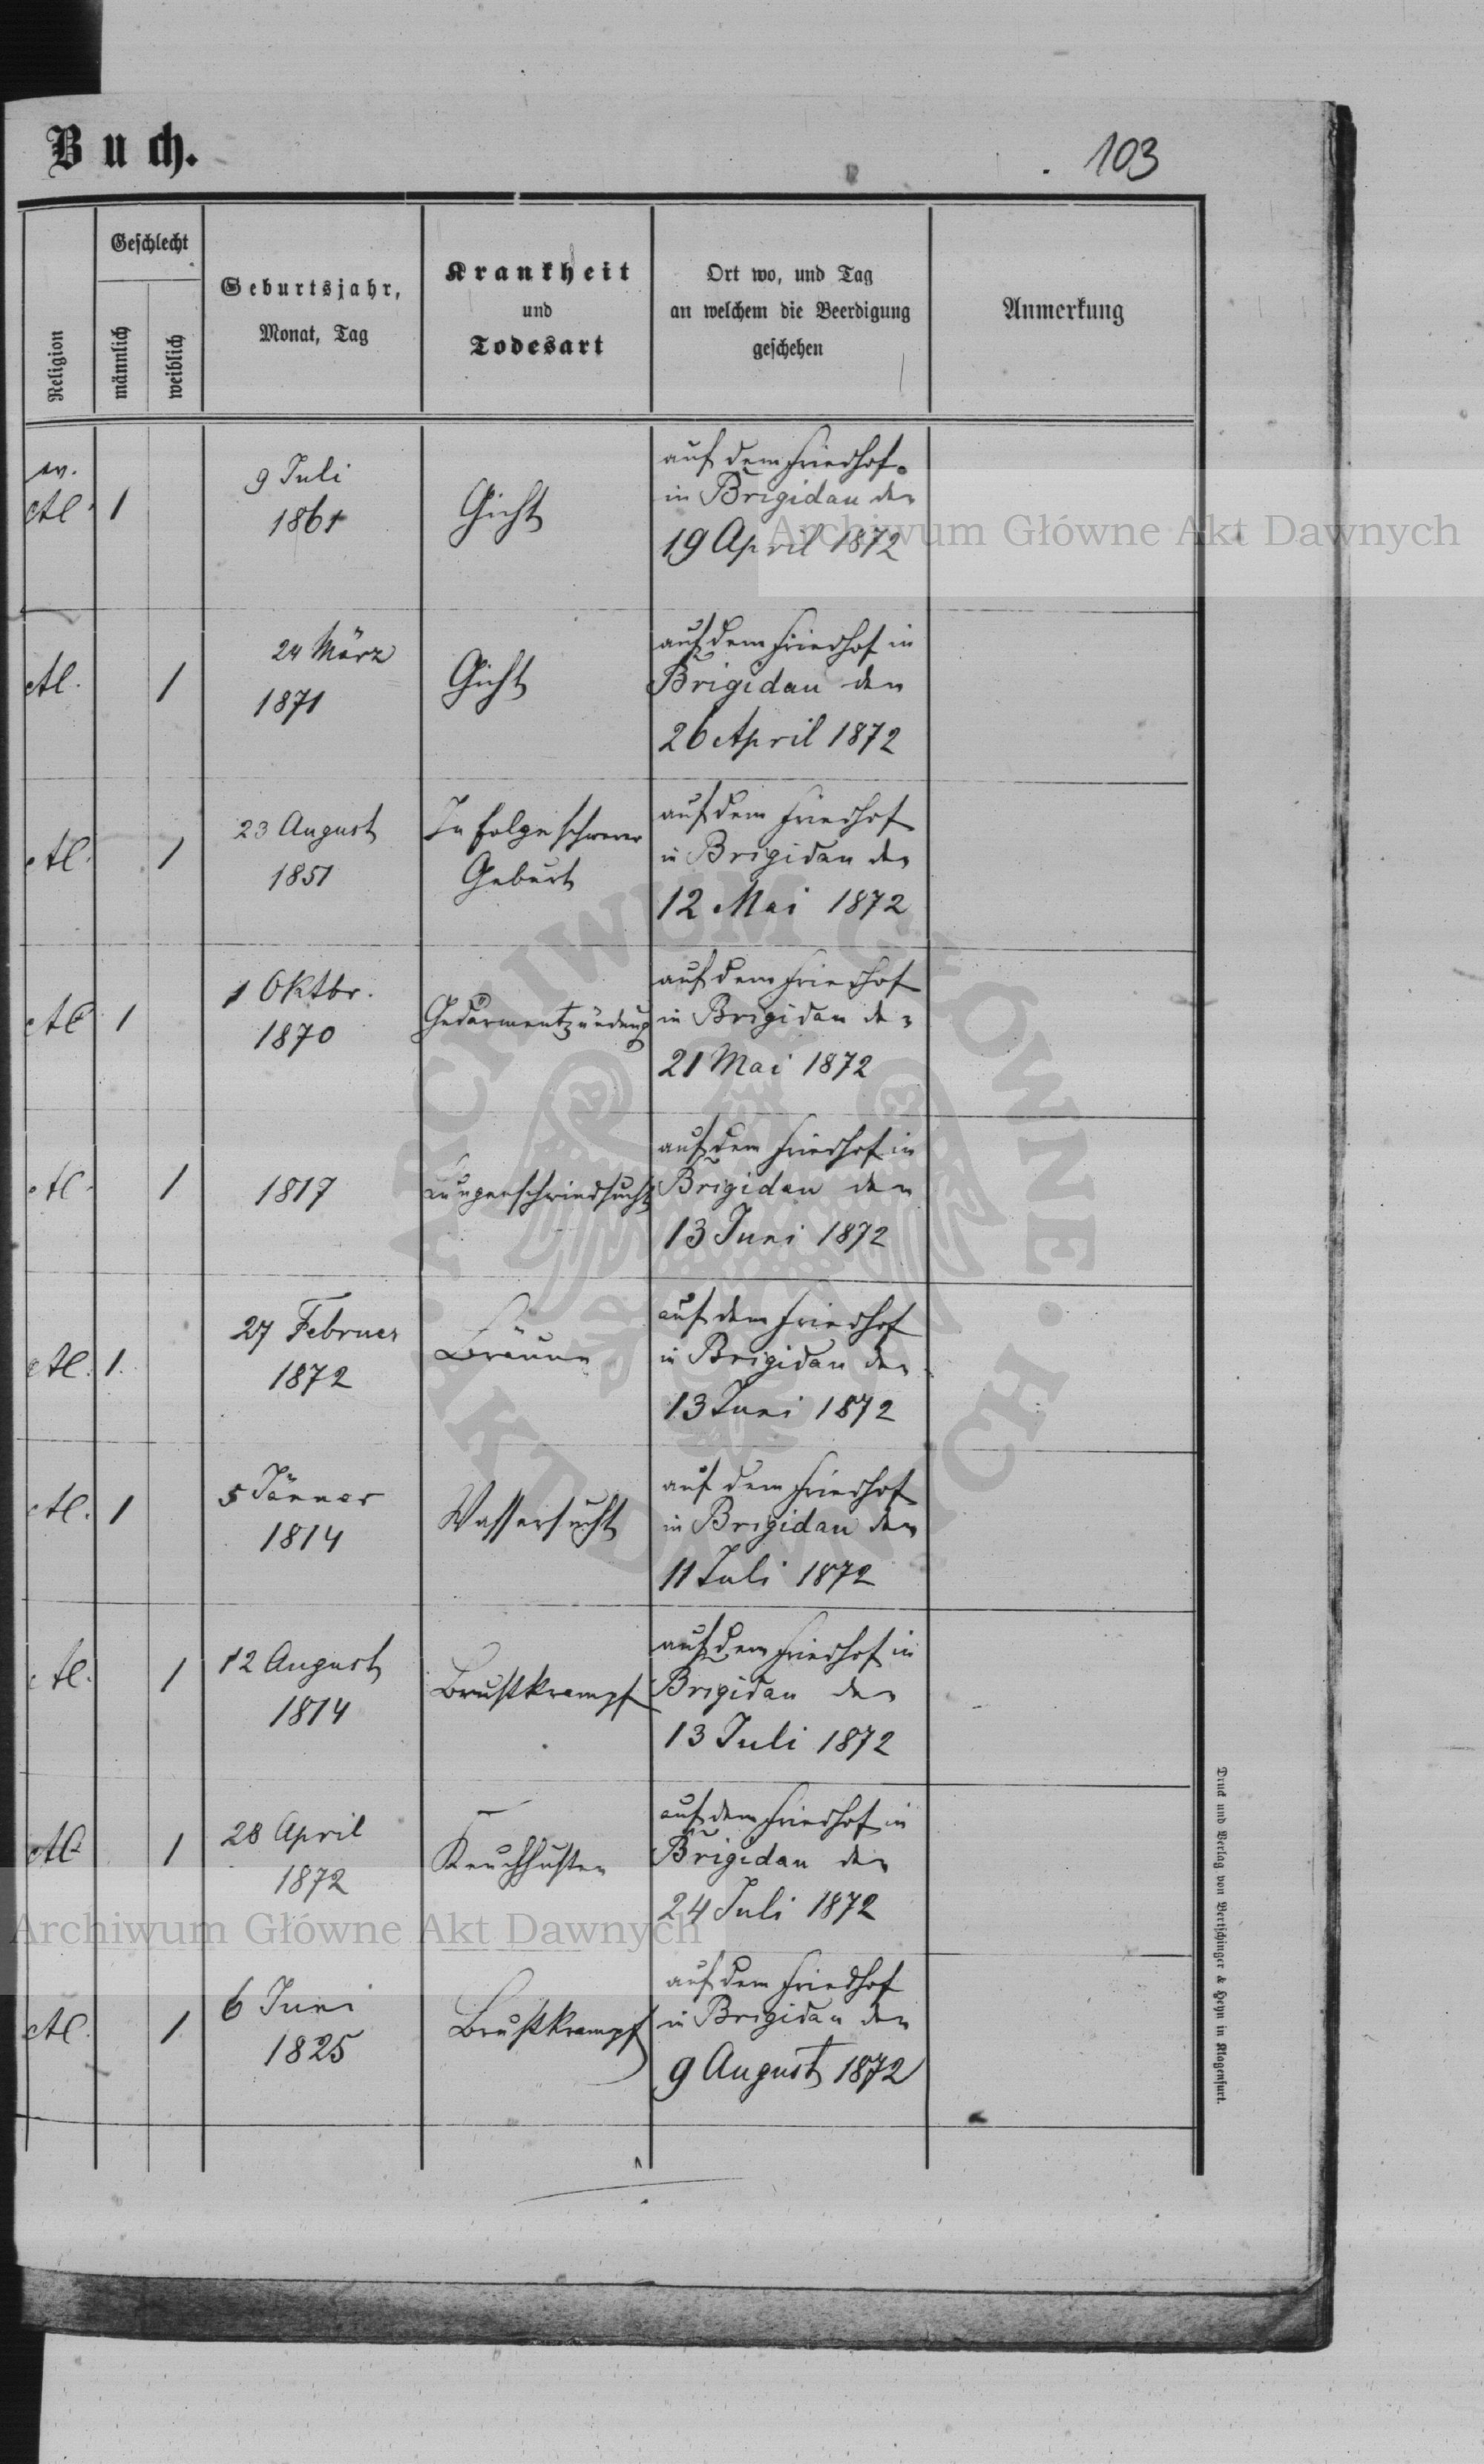 Buch.
103
Religion
Geschlecht
männlich
weiblich
Geburtsjahr,
Monat, Tag
Krankheit
und
Todesart
Ort wo, und Tag
an welchem die Beerdigung
geschehen
Anmerkung
ev.
AC. 1
9 Juli
1861
Gicht
auf dem Friedhof
in Brigidau den
19 April 1872
Archiwum Główne Akt Dawnych
AC. 1
24 März
1871
Gicht
auf dem Friedhof in
Brigidau den
26 April 1872
AC. 1
23 August
1851
In Folge schwerer
Geburt
auf dem Friedhof
in Brigidau den
12 Mai 1872
AC 1
1 Oktbr.
1870
Gedärmentzündung
auf dem Friedhof
in Brigidau den
21 Mai 1872
AC. 1
1817
Lungenschwindsucht
auf dem Friedhof in
Brigidau den
13 Juni 1872
AC. 1.
27 Februer
1872
Bräune
auf dem Friedhof
in Brigidau den
13 Juni 1872
AC. 1
5 Jänner
1814
Wassersucht
auf dem Friedhof
in Brigidau den
11 Juli 1872
AC. 1
12 August
1814
Brustkrampf
auf dem Friedhof in
Brigidau den
13 Juli 1872
AC 1
28 April
1872
Keuchhusten
auf dem Friedhof in
Brigidau den
24 Juli 1872
Archiwum Główne Akt Dawnych
AC. 1
6 Juni
1825
Brustkrampf
auf dem Friedhof
in Brigidau den
9 August 1872
Druck und Verlag von Bertschinger & Heyn in Klagenfurt.
ARCHIWUM GŁÓWNE · AKT DAWNYCH ·